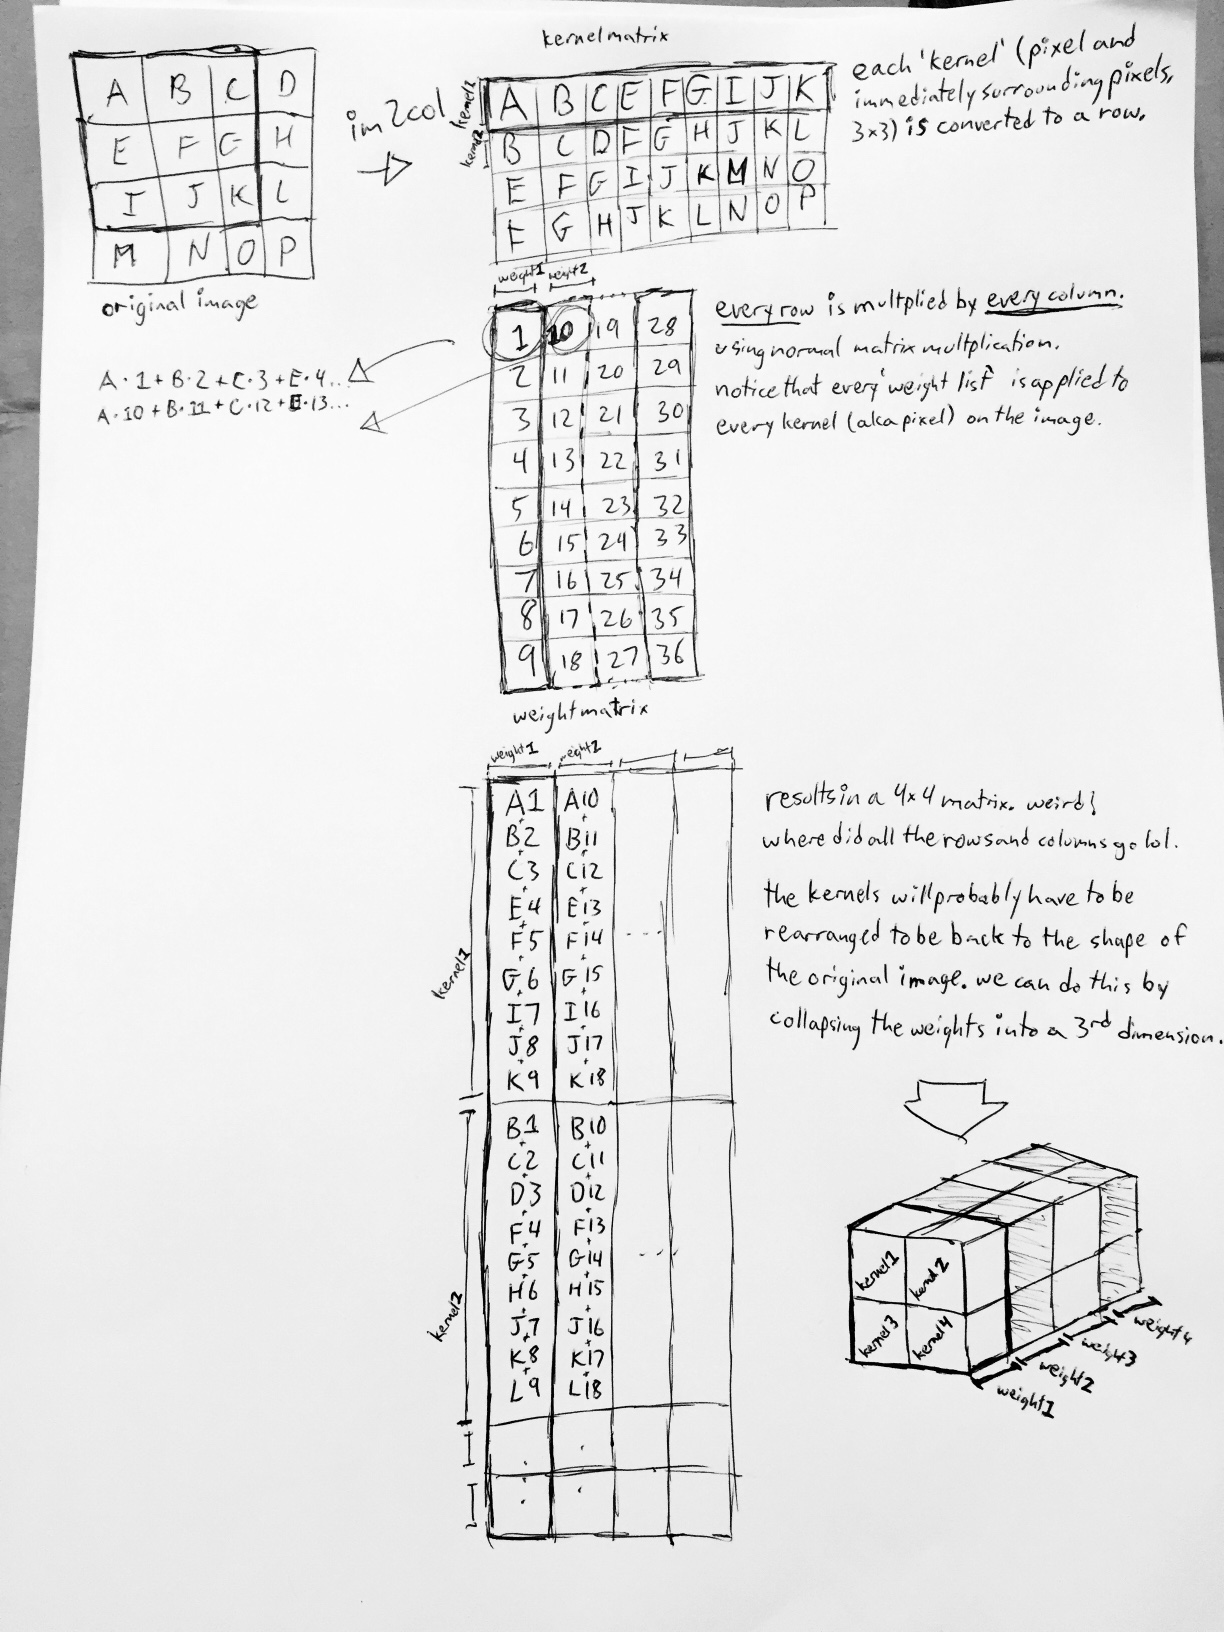 kernel matrix
A B C D
E F G H
I J K L
M N O P
original image
im2col
kernel1
kernel2
A B C E F G I J K
B C D F G H J K L
E F G I J K M N O
F G H J K L N O P
each 'kernel' (pixel and
immediately surrounding pixels,
3x3) is converted to a row.
weight1 weight2
1 10 19 28
2 11 20 29
3 12 21 30
4 13 22 31
5 14 23 32
6 15 24 33
7 16 25 34
8 17 26 35
9 18 27 36
weight matrix
A·1+B·2+C·3+E·4..
A·10+B·11+C·12+E·13...
every row is multplied by every column.
using normal matrix multplication.
notice that every 'weight list' is applied to
every kernel (aka pixel) on the image.
weight1 weight2
kernel1
A1 A10
+ +
B2 B11
+ +
C3 C12
+ +
E4 E13
+ +
F5 F14 ...
+ +
G6 G15
+ +
I7 I16
+ +
J8 J17
+ +
K9 K18
kernel2
B1 B10
+ +
C2 C11
+ +
D3 D12
+ +
F4 F13
+ +
G5 G14 ...
+ +
H6 H15
+ +
J7 J16
+ +
K8 K17
+ +
L9 L18
results in a 4x4 matrix. weird!
where did all the rows and columns go lol.
the kernels will probably have to be
rearranged to be back to the shape of
the original image. we can do this by
collapsing the weights into a 3rd dimension.
kernel1 kernel2
kernel3 kernel4
weight1
weight2
weight3
weight4